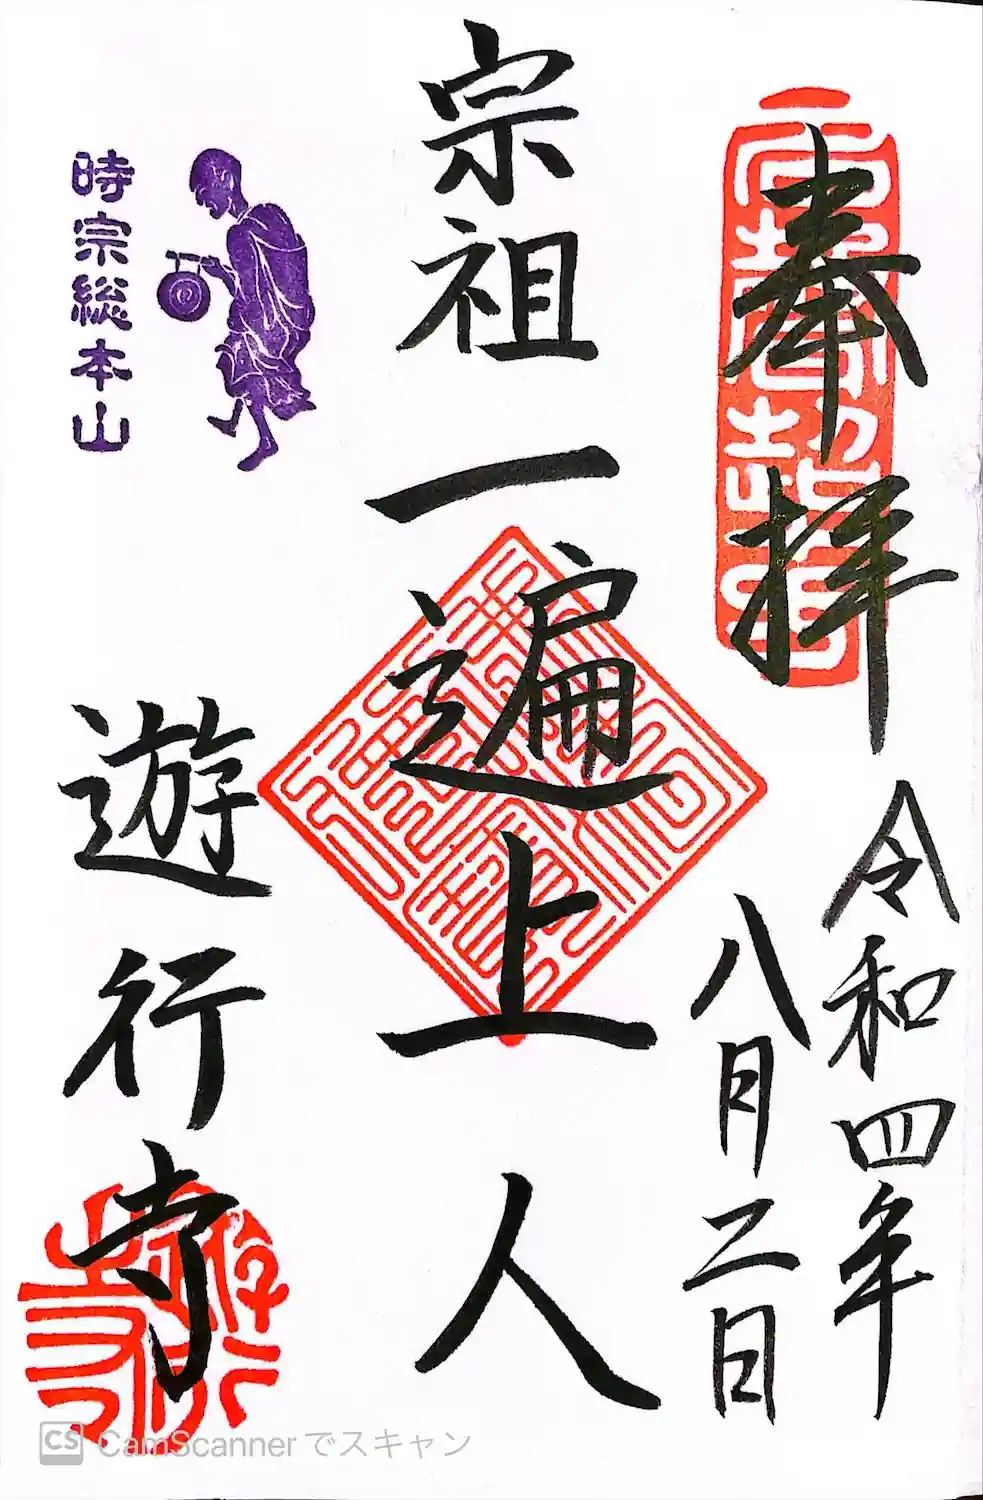 奉拝
令和四年
八月二日
宗祖一遍上人
時宗総本山
遊行寺
CS CamScannerでスキャン